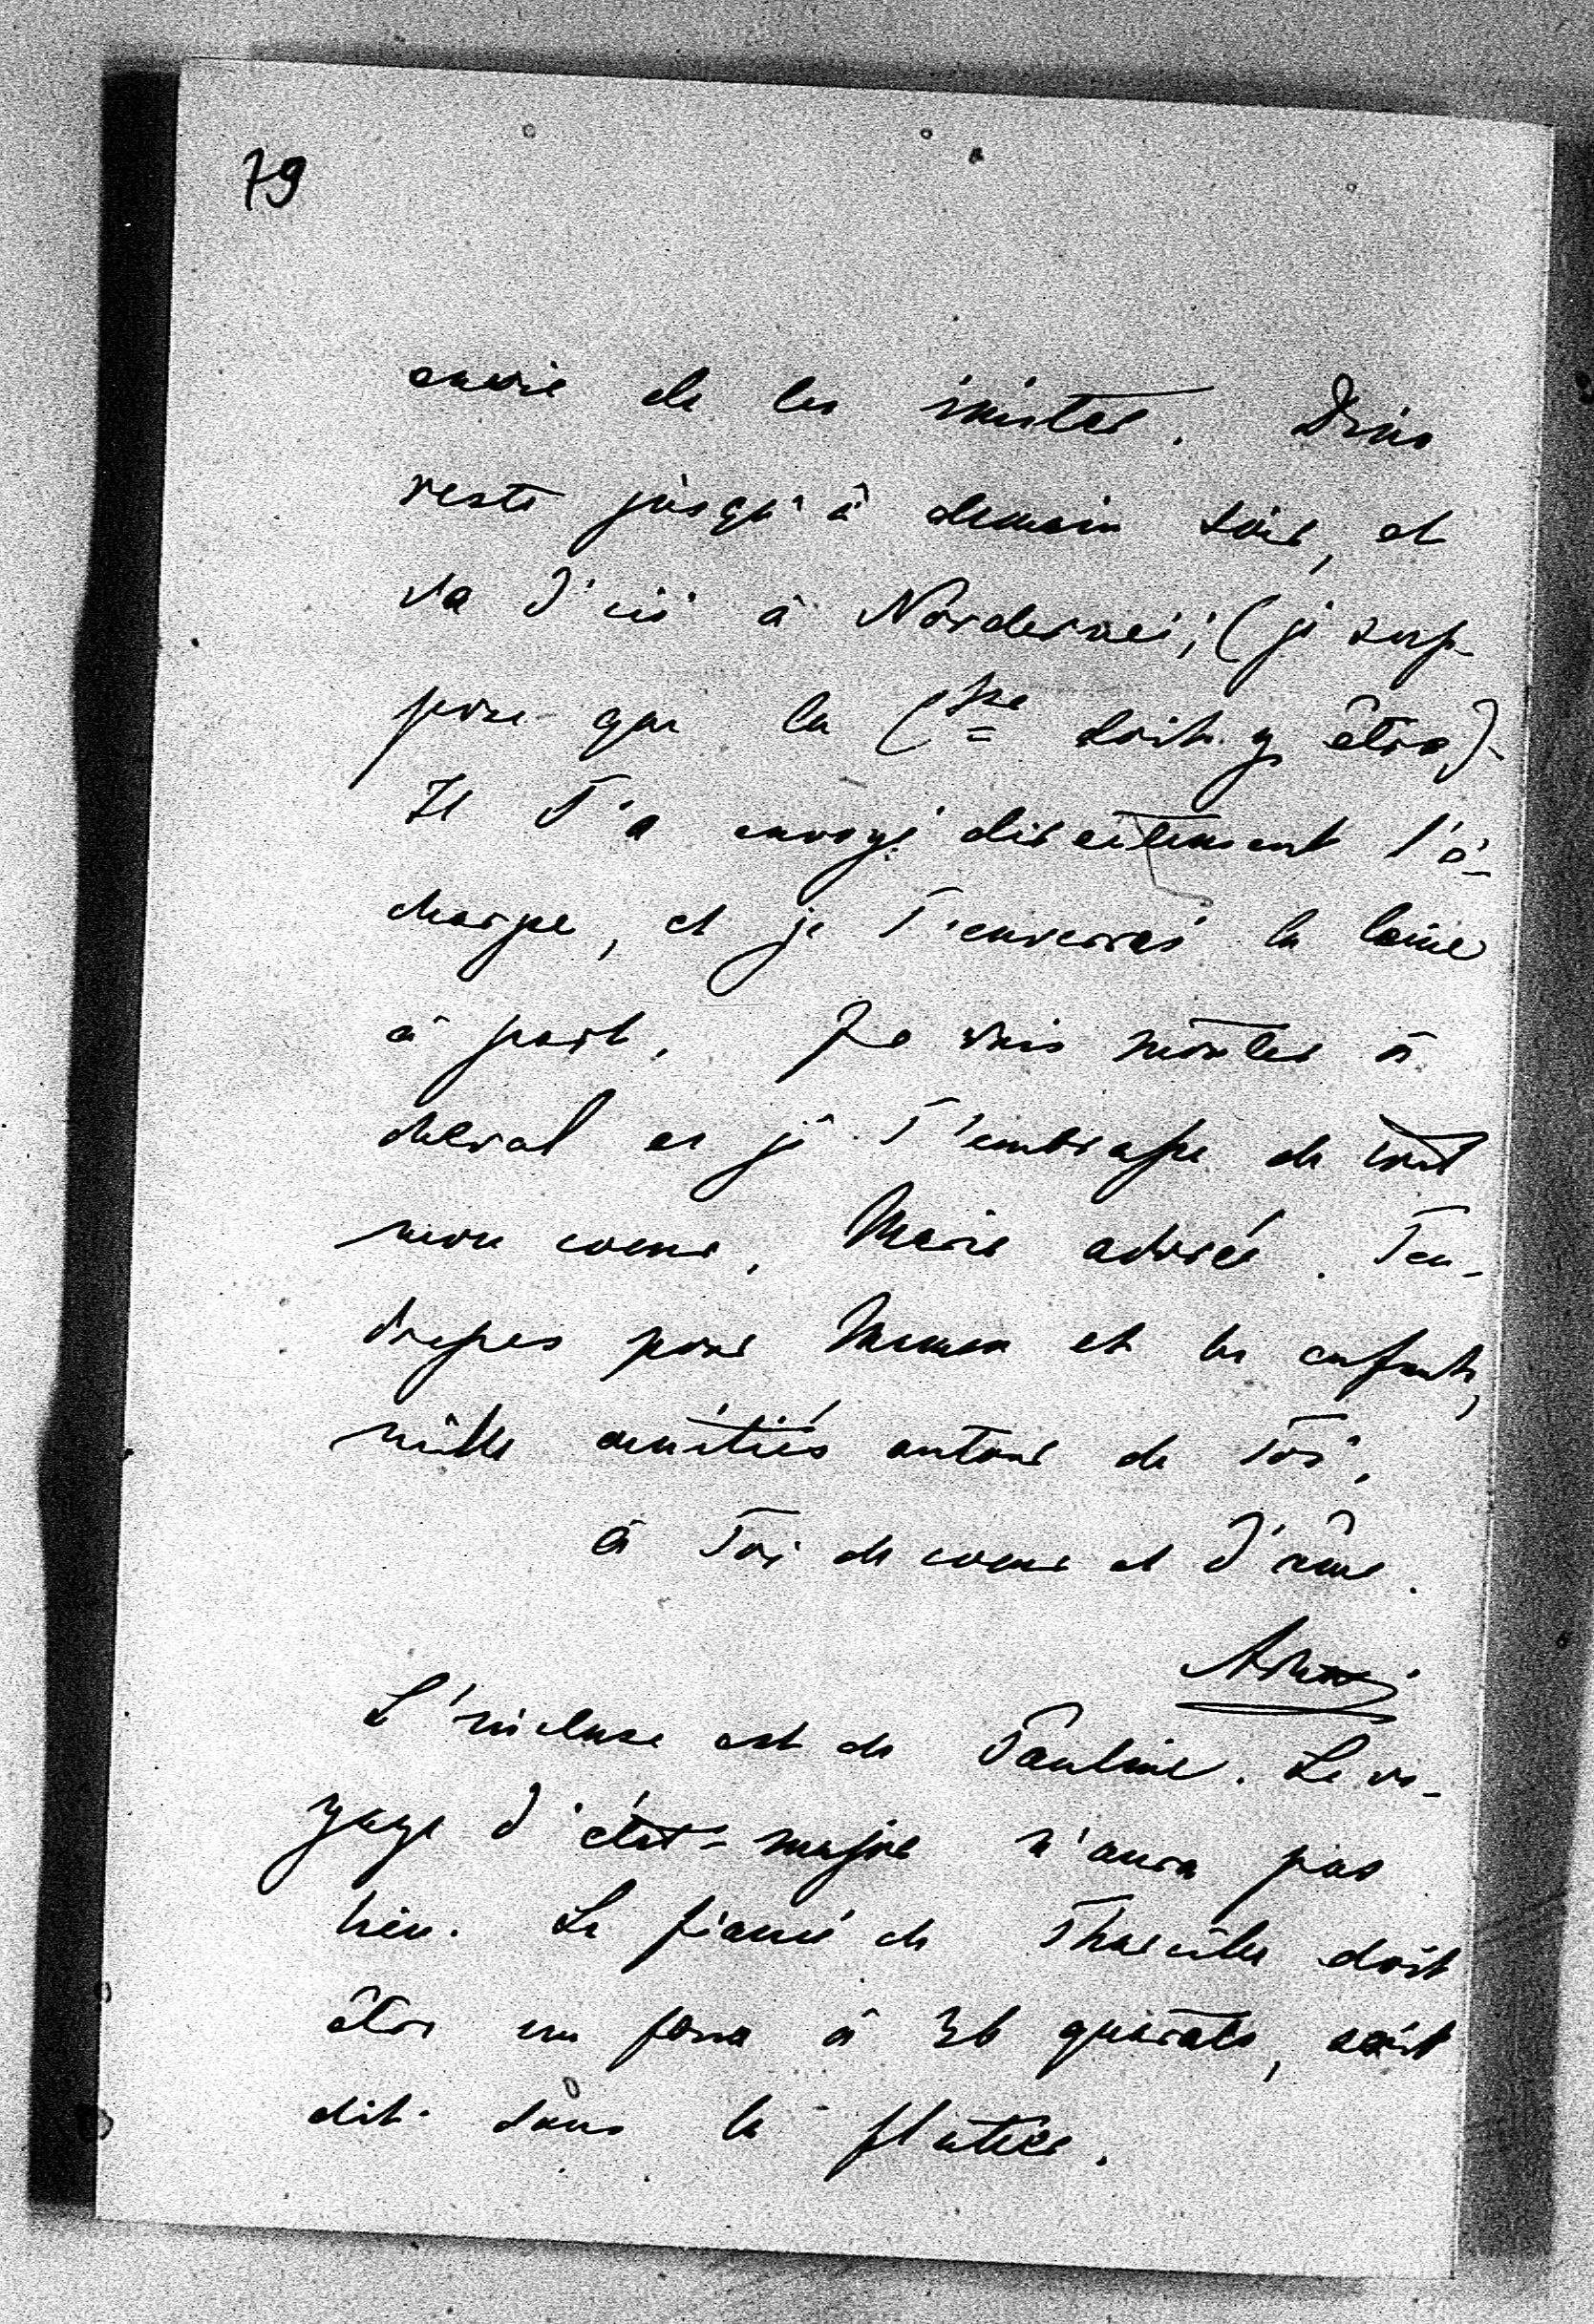 79
envie de les imiter. Dino
reste jusqu'à demain soir, et
va d'ici à Nordernei; (je sup-
pose que la Csse doit y être).
Il T'a envoyé directement l'é-
charpe, et je T'enverrai la laine
à part. Je vais monter à
cheval et je T'embrasse de tout
mon coeur, Marie adorée. Ten-
dresses pour Maman et les enfants,
mille amitiés autour de Toi.
à Toi de coeur et d'âme.
L'incluse est de Pauline. Le vo-
yage d'état-major n'aura pas
lieu. Le fiancé de doit
être un à 36 quarats, soit
dit sans le flatter.